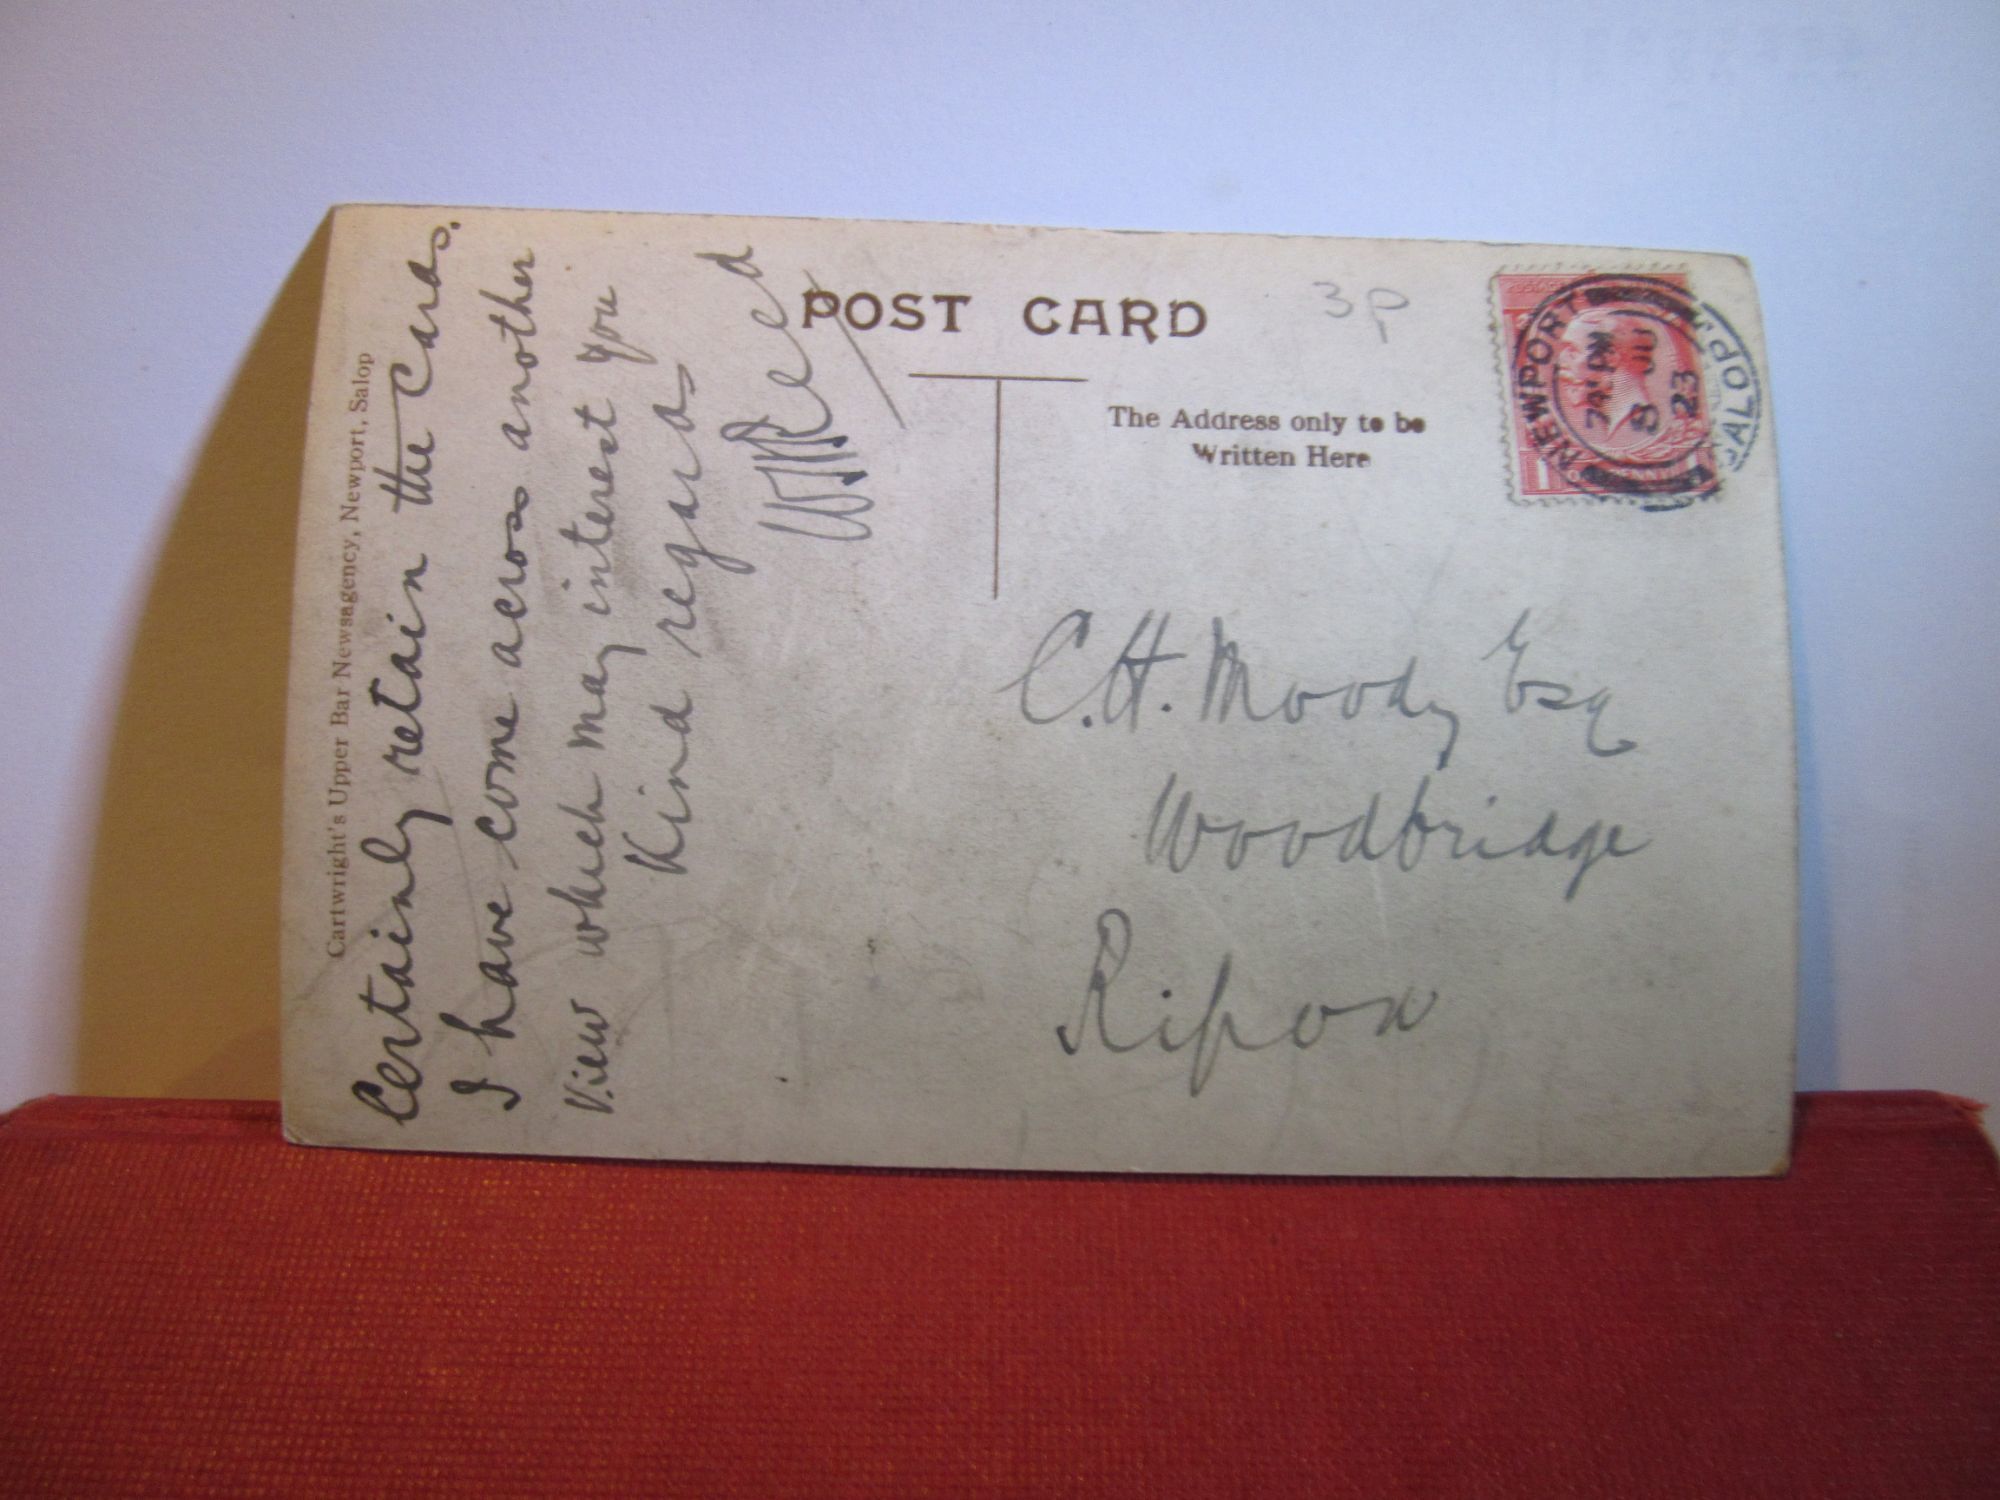 Cartwright's Upper Bar Newsagency, Newport, Salop
Certainly retain the Cards.
I have come across another
View which may interest you
Kind regards
Reed
POST CARD
3P
The Address only to be
Written Here
NEWPORT
SALOP
PM
8 JU
23
1
C.H. Moody Esq
Woodbridge
Ripon